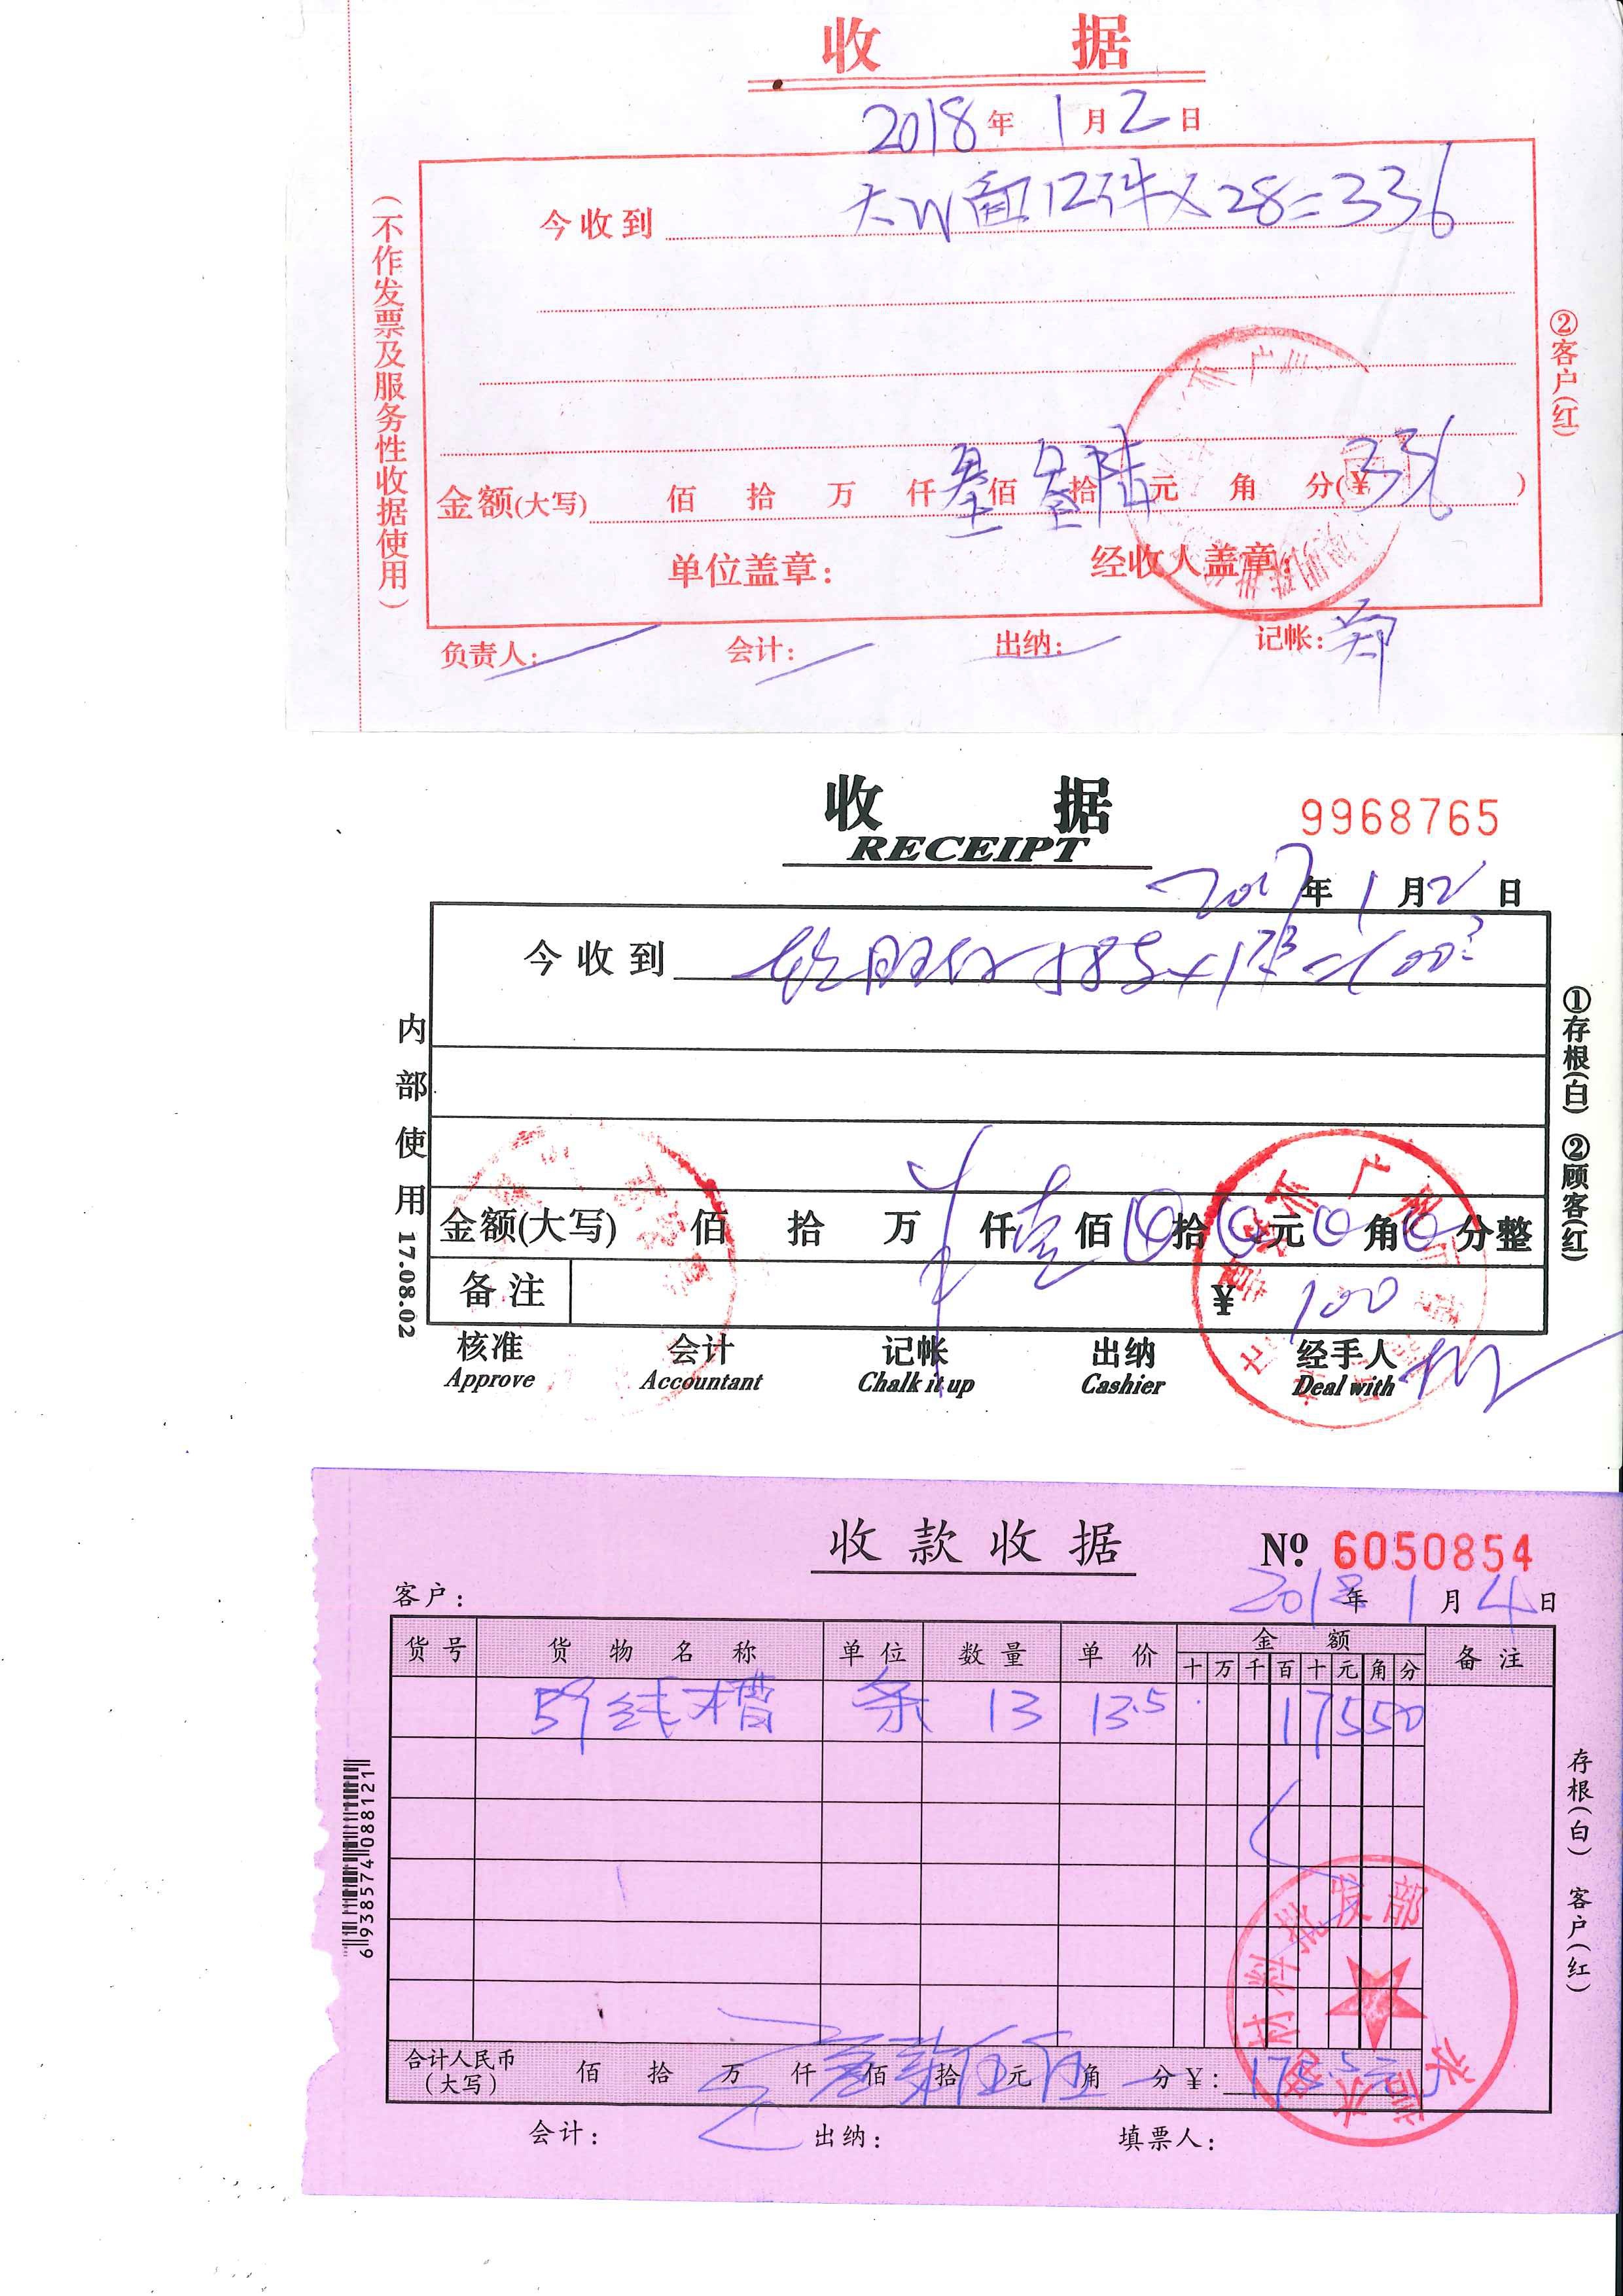 收 据
2018年 1月2日
(不作发票及服务性收据使用)
今收到 大 12件×28=336
②客户(红)
金额(大写) 佰 拾 万 仟叁佰叁拾陆元 角 分(¥336)
单位盖章: 经收人盖章:
负责人: 会计: 出纳: 记帐:郑
收 据
9968765
RECEIPT
2017年 1月2日
今收到
内部使用 17.08.02
①存根(白) ②顾客(红)
金额(大写) 佰 拾 万 仟壹佰0拾0元0角0分整
备注 ¥ 100
核准 会计 记帐 出纳 经手人
Approve Accountant Chalk it up Cashier Deal with
收款收据
№ 6050854
客户: 2018年 1月4日
货号 货物名称 单位 数量 单价 金额 备注
十 万 千 百 十 元 角 分
59线槽 条 13 13.5 17550
6938574088121
存根(白) 客户(红)
材料批发部
合计人民币(大写) 佰 拾 万 仟壹佰柒拾伍元伍角 分¥:175.5
会计: 出纳: 填票人: